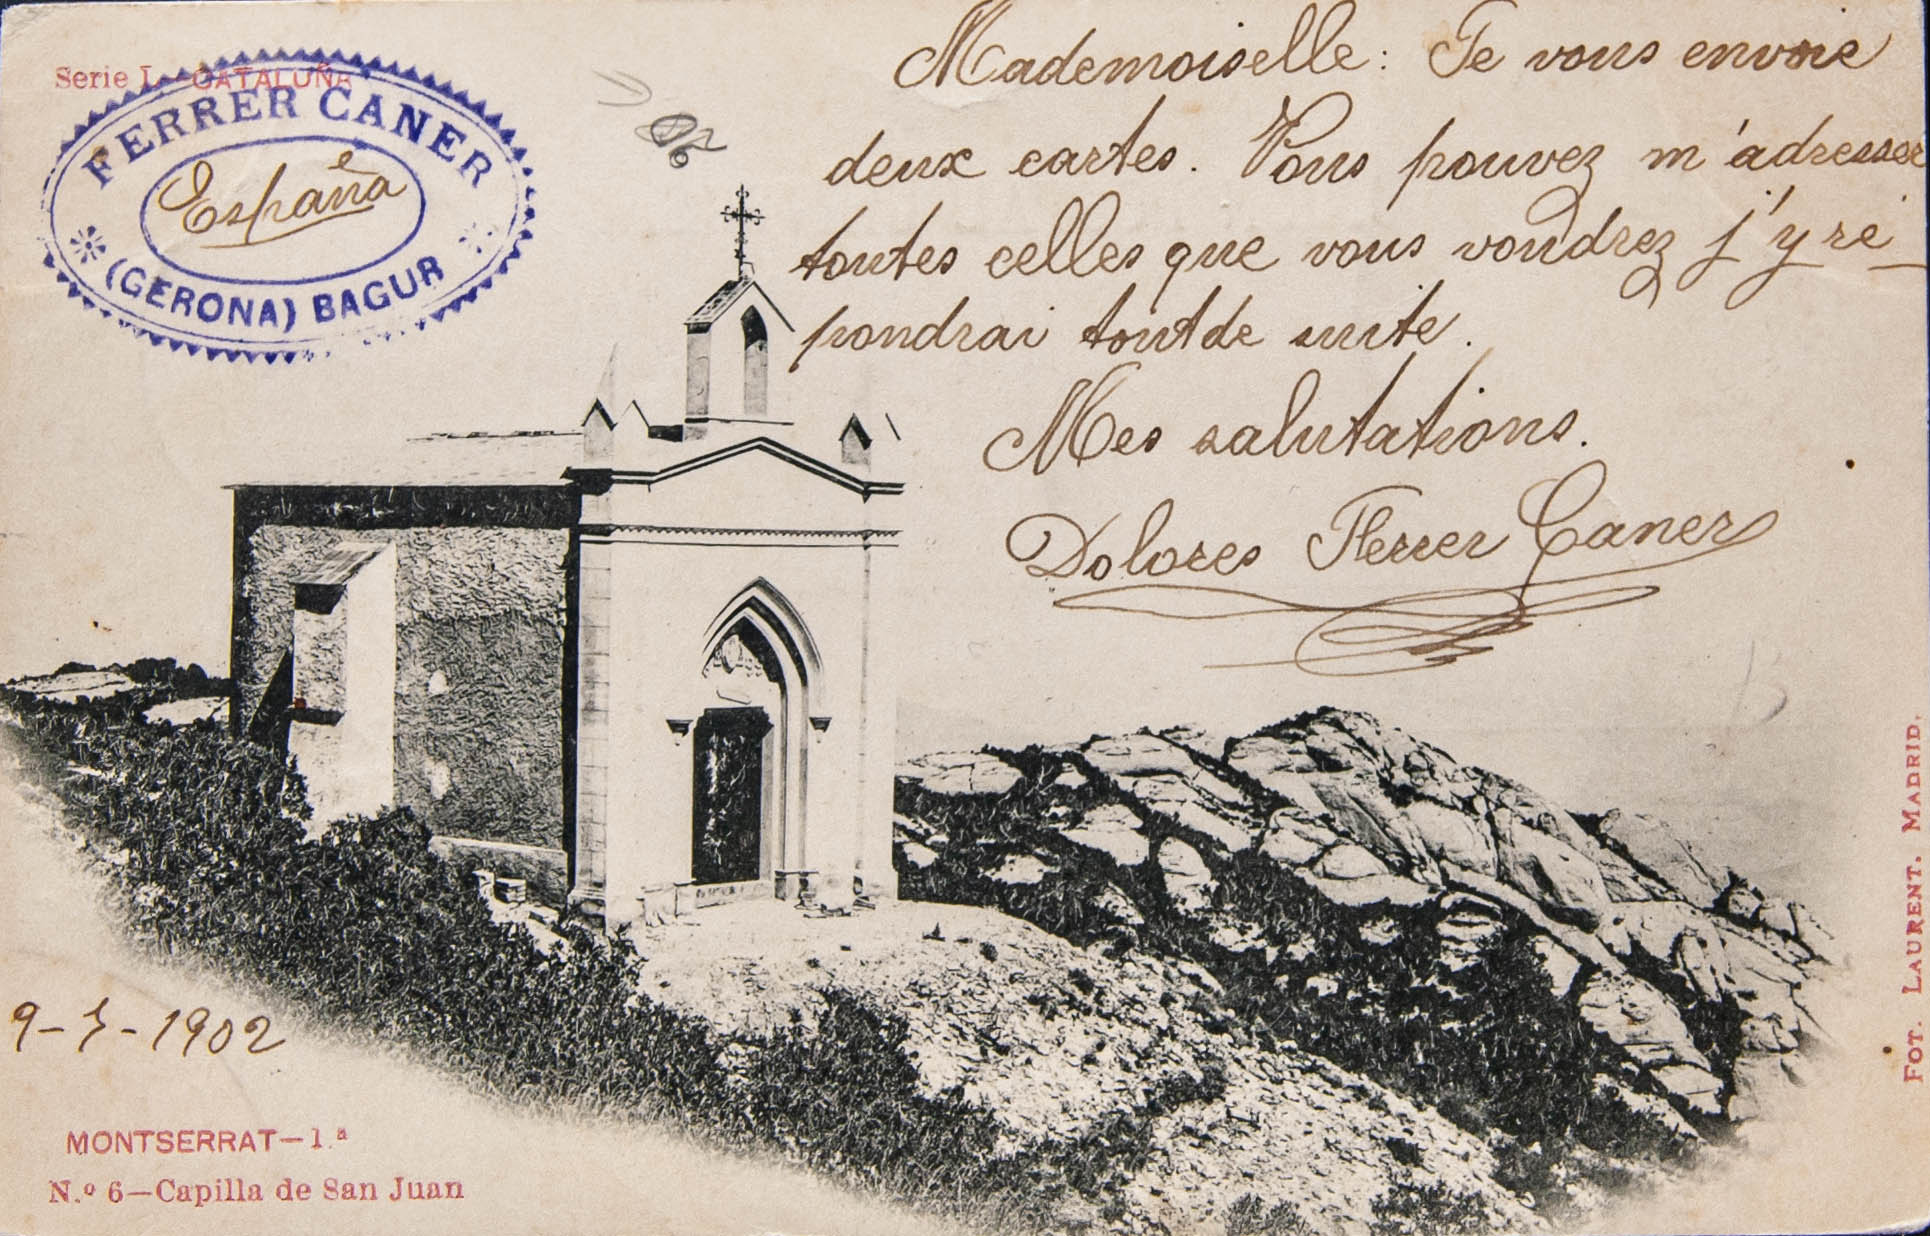 Serie I.—CATALUÑA
FERRER CANER
España
(GERONA) BAGUR
Mademoiselle: Je vous envoie
deux cartes. Vous pouvez m'adresser
toutes celles que vous voudrez j'y ré-
pondrai tout de suite.
Mes salutations.
Dolores Ferrer Caner
9-5-1902
MONTSERRAT—1.ª
N.º 6—Capilla de San Juan
FOT LAURENT. MADRID.